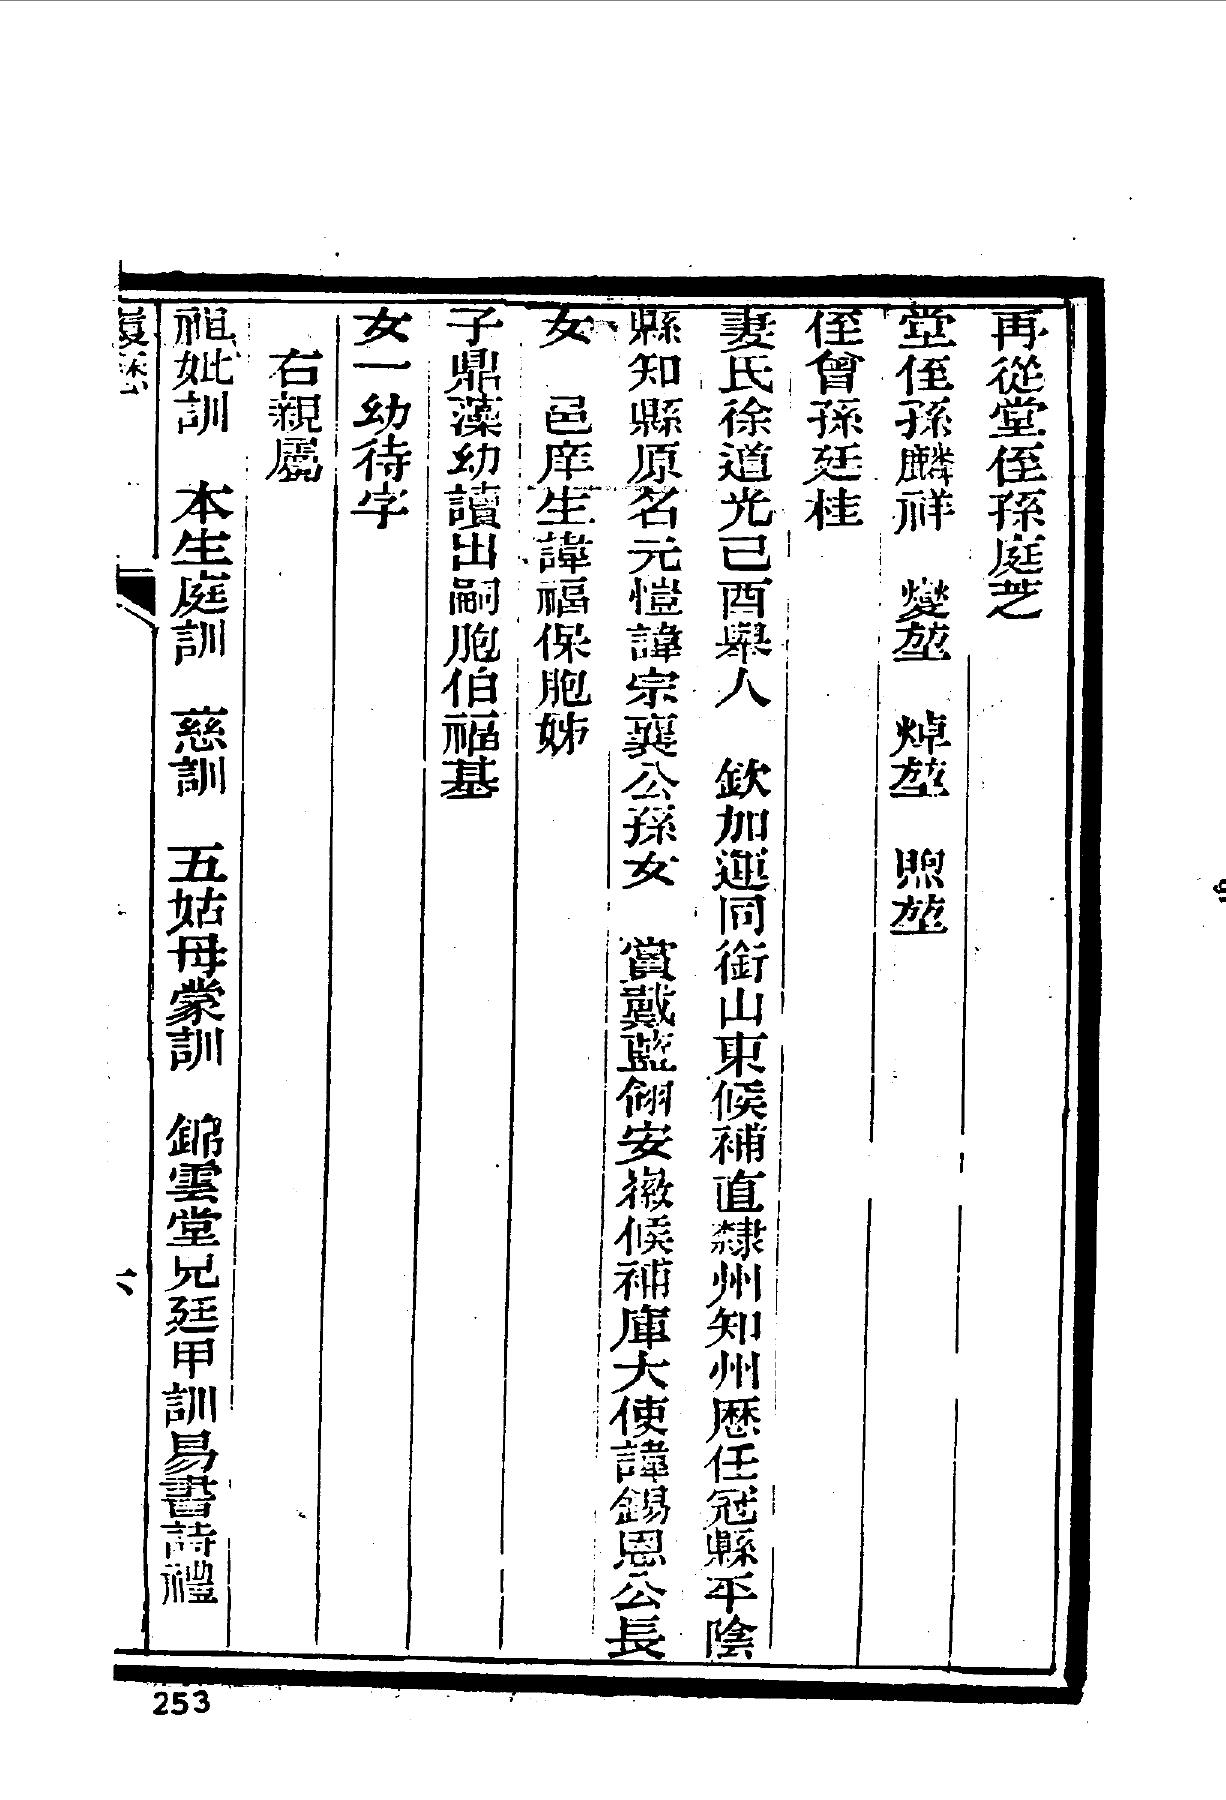 再從堂侄孫庭芝
堂侄孫麟祥　燮堃　焯堃　煦堃
侄曾孫廷桂
妻氏徐道光己酉舉人　欽加運同銜山東候補直隸州知州歷任冠縣平陰
縣知縣原名元愷諱宗襄公孫女　賞戴藍翎安徽候補庫大使諱錫恩公長
女　邑庠生諱福保胞姊
子鼎藻幼讀出嗣胞伯福基
女一幼待字
右親屬
祖妣訓　本生庭訓　慈訓　五姑母蒙訓　錦雲堂兄廷甲訓易書詩禮
履歷
六
253